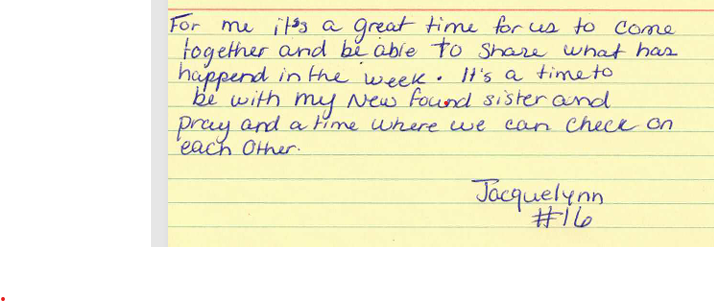 For me it's a great time for us to come
together and be able to share what has
happend in the week. It's a time to
be with my New found sister and
pray and a time where we can check on
each other.
Jacquelynn
#16